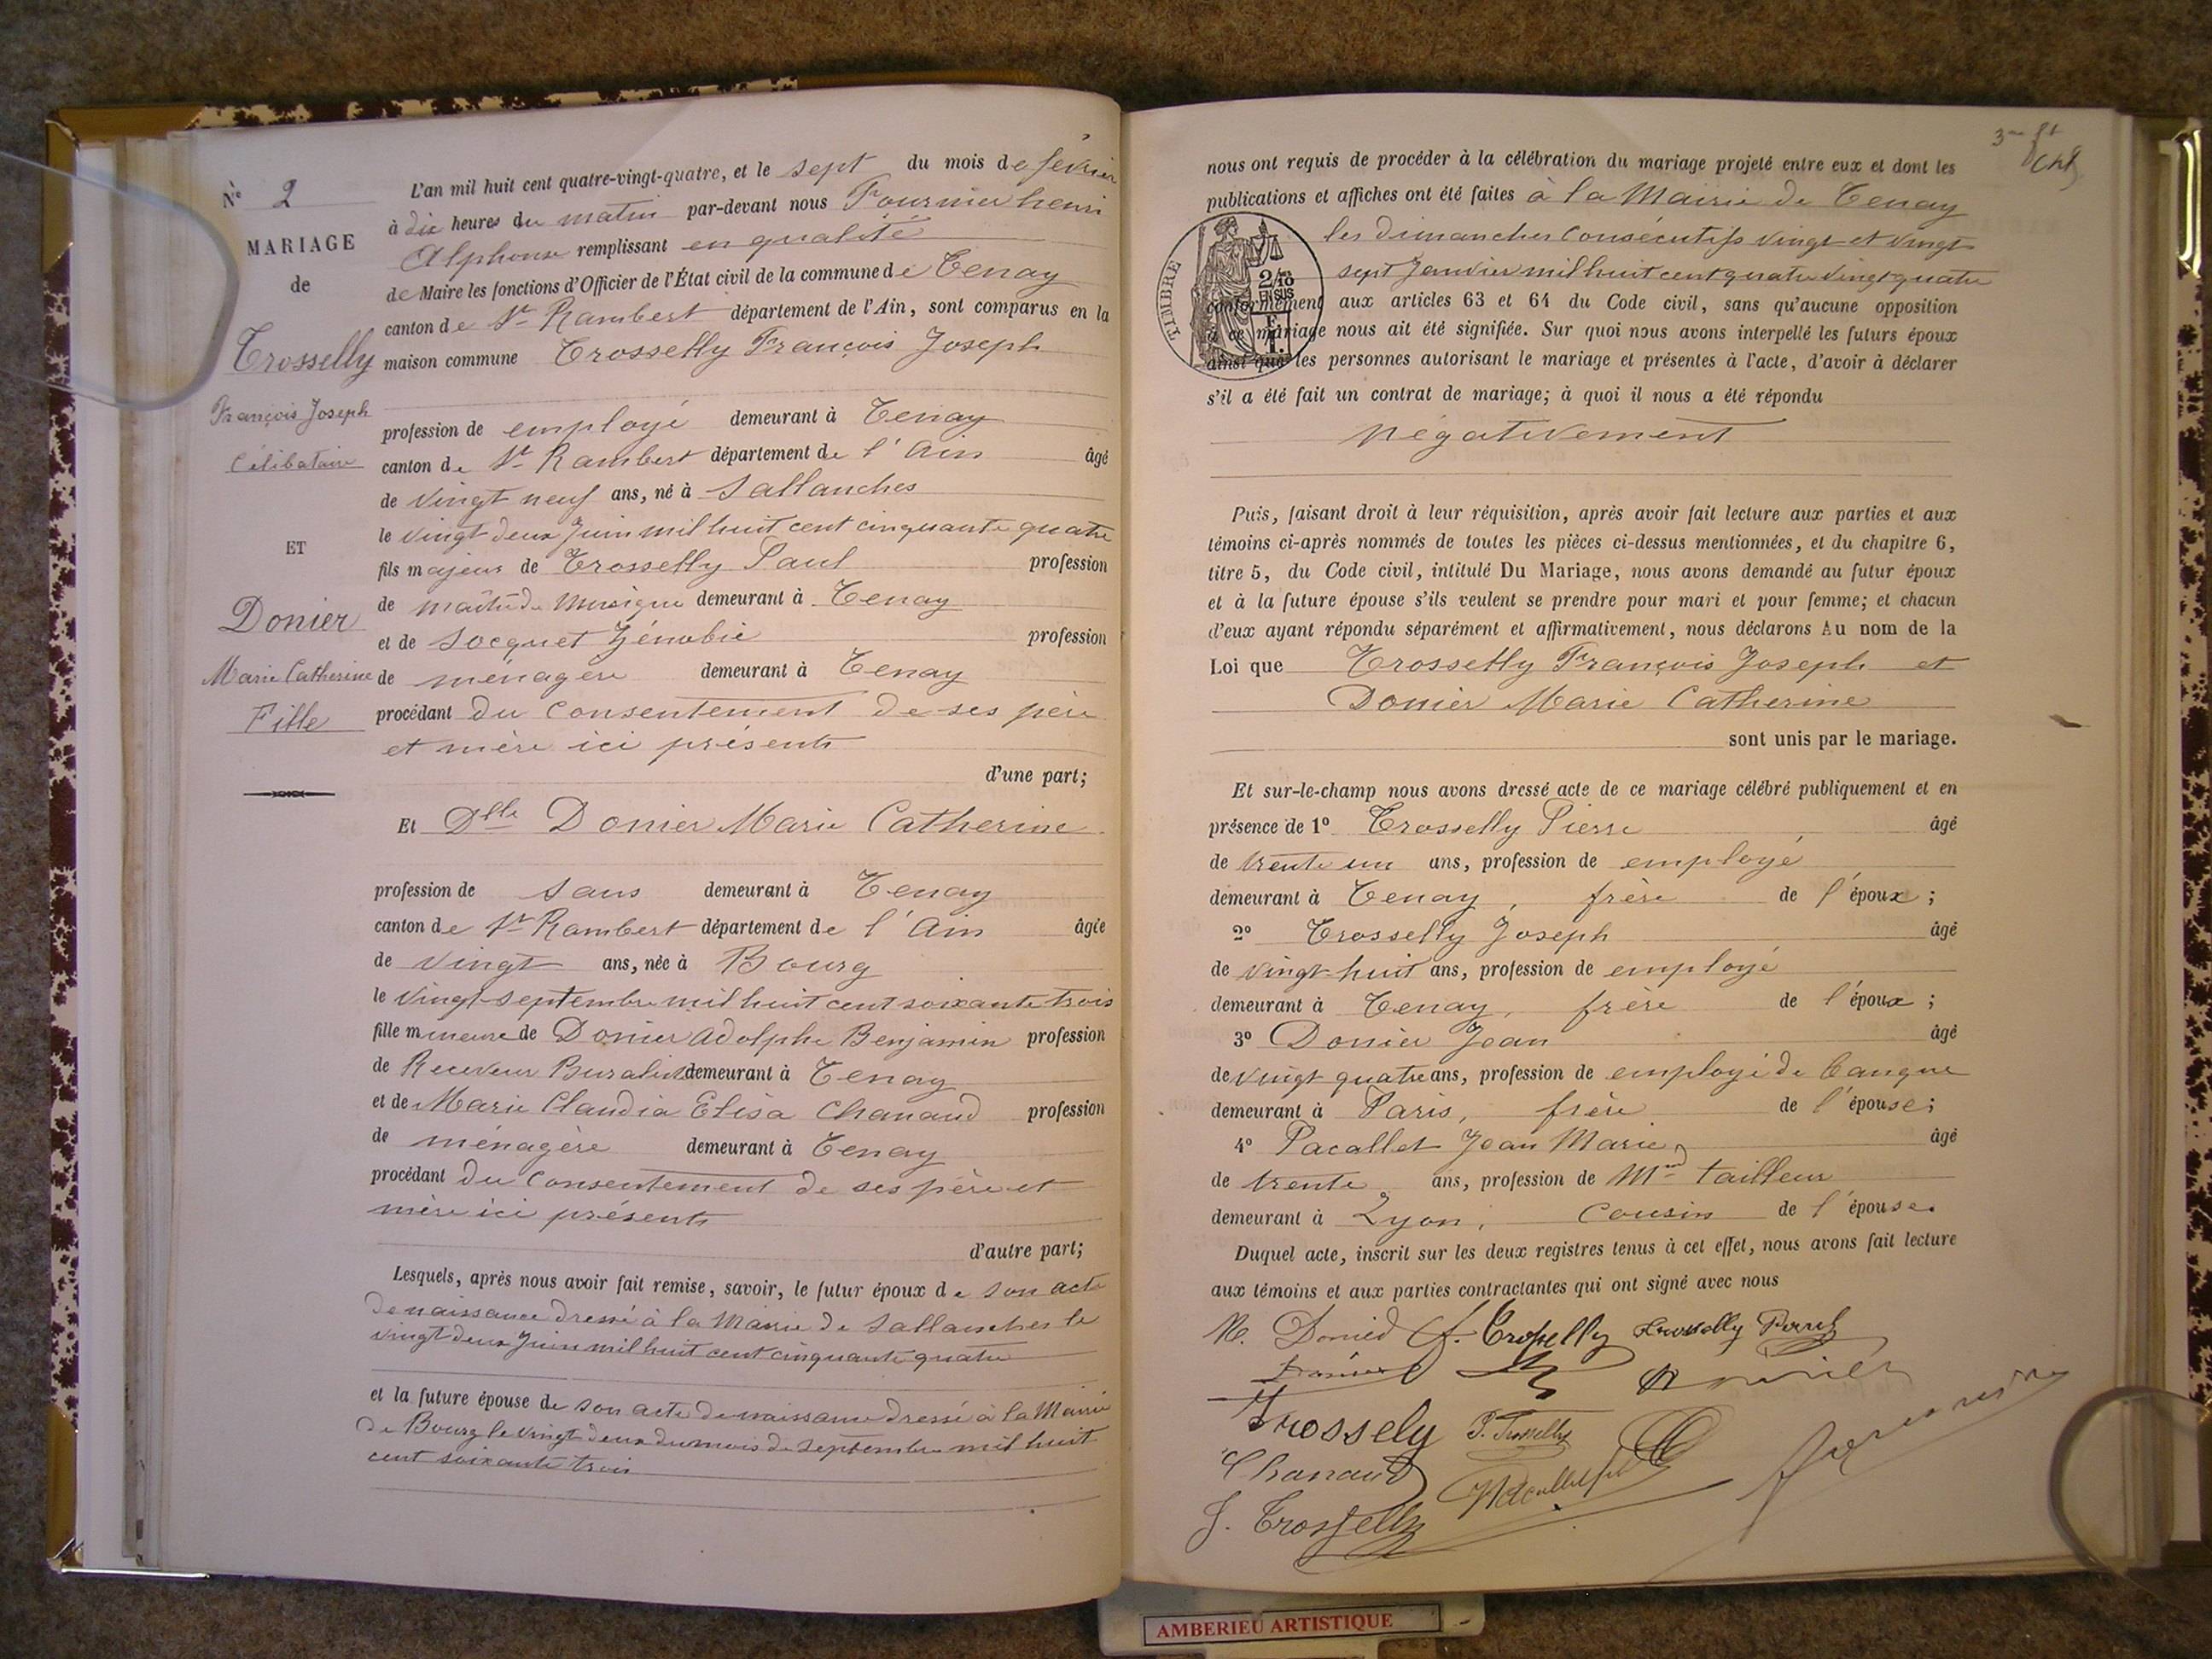 N° 2
MARIAGE
de
Trosselly
François Joseph
Célibataire
ET
Donier
Marie Catherine
Fille
L'an mil huit cent quatre-vingt-quatre, et le sept du mois de février
à dix heures du matin par-devant nous Fournier henri
Alphonse remplissant en qualité
de Maire les fonctions d'Officier de l'État civil de la commune de Tenay
canton de St Rambert département de l'Ain, sont comparus en la
maison commune Trosselly François Joseph
profession de employé demeurant à Tenay
canton de St Rambert département de l'Ain âgé
de vingt neuf ans, né à Sallanches
le vingt deux Juin mil huit cent cinquante quatre
fils majeur de Trosselly Paul profession
de maître de Musique demeurant à Tenay
et de Socquet Zénobie profession
de ménagère demeurant à Tenay
procédant du consentement de ses père
et mère ici présents
d'une part;
Et Dlle Donier Marie Catherine
profession de sans demeurant à Tenay
canton de St Rambert département de l'Ain âgée
de vingt ans, née à Bourg
le vingt septembre mil huit cent soixante trois
fille mineure de Donier Adolphe Benjamin profession
de Receveur Buraliste demeurant à Tenay
et de Marie Claudia Elisa Chanaud profession
de ménagère demeurant à Tenay
procédant du consentement de ses père et
mère ici présents
d'autre part;
Lesquels, après nous avoir fait remise, savoir, le futur époux de son acte
de naissance dressé à la Mairie de Sallanches le
vingt deux Juin mil huit cent cinquante quatre
et la future épouse de son acte de naissance dressé à la Mairie
de Bourg le vingt deux du mois de septembre mil huit
cent soixante trois
nous ont requis de procéder à la célébration du mariage projeté entre eux et dont les
publications et affiches ont été faites à la Mairie de Tenay
les dimanches consécutifs vingt et vingt
sept Janvier mil huit cent quatre vingt quatre
TIMBRE
2/10
EN SUS
conformément aux articles 63 et 64 du Code civil, sans qu'aucune opposition
à ce mariage nous ait été signifiée. Sur quoi nous avons interpellé les futurs époux
ainsi que les personnes autorisant le mariage et présentes à l'acte, d'avoir à déclarer
s'il a été fait un contrat de mariage; à quoi il nous a été répondu
négativement
Puis, faisant droit à leur réquisition, après avoir fait lecture aux parties et aux
témoins ci-après nommés de toutes les pièces ci-dessus mentionnées, et du chapitre 6,
titre 5, du Code civil, intitulé Du Mariage, nous avons demandé au futur époux
et à la future épouse s'ils veulent se prendre pour mari et pour femme; et chacun
d'eux ayant répondu séparément et affirmativement, nous déclarons Au nom de la
Loi que Trosselly François Joseph et
Donier Marie Catherine
sont unis par le mariage.
Et sur-le-champ nous avons dressé acte de ce mariage célébré publiquement et en
présence de 1° Trosselly Pierre âgé
de trente un ans, profession de employé
demeurant à Tenay, frère de l'époux;
2° Trosselly Joseph âgé
de vingt huit ans, profession de employé
demeurant à Tenay, frère de l'époux;
3° Donier Jean âgé
de vingt quatre ans, profession de employé de banque
demeurant à Paris, frère de l'épouse;
4° Pacallet Jean Marie âgé
de trente ans, profession de Md tailleur
demeurant à Lyon, cousin de l'épouse.
Duquel acte, inscrit sur les deux registres tenus à cet effet, nous avons fait lecture
aux témoins et aux parties contractantes qui ont signé avec nous
M. Donier f. Trosselly
Trossely P. Trosselly
Chanaud
J. Trosselly
AMBERIEU ARTISTIQUE